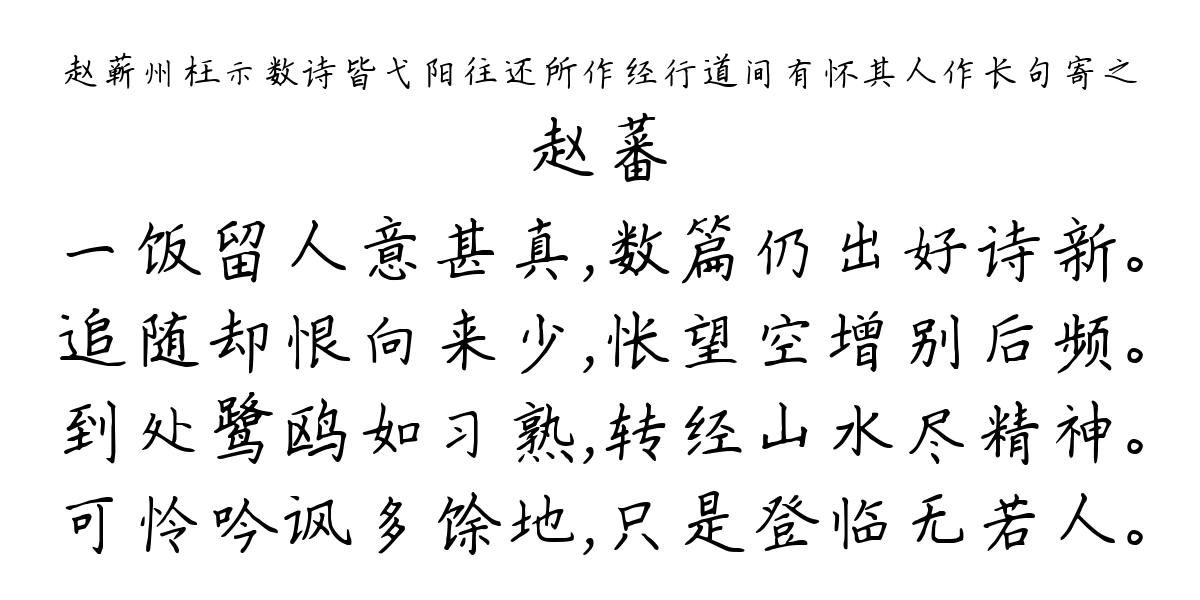 赵蕲州枉示数诗皆弋阳往还所作经行道间有怀其人作长句寄之
赵蕃
一饭留人意甚真,数篇仍出好诗新。
追随却恨向来少,怅望空增别后频。
到处鹭鸥如习熟,转经山水尽精神。
可怜吟讽多馀地,只是登临无若人。